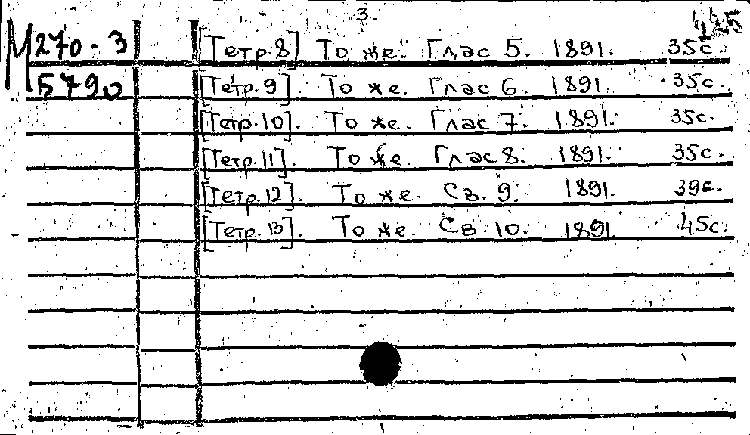 3.
М270-3 [Тетр. 8] То же. Глас 5. 1891. 35с.
5790 [Тетр. 9]. То же. Глас 6. 1891. 35с.
[Тетр. 10]. То же. Глас 7. 1891. 35с.
[Тетр. 11]. То же. Глас 8. 1891. 35с.
[Тетр. 12]. То же. Св. 9. 1891. 39с.
[Тетр. 13]. То же. Св. 10. 1891. 45с.